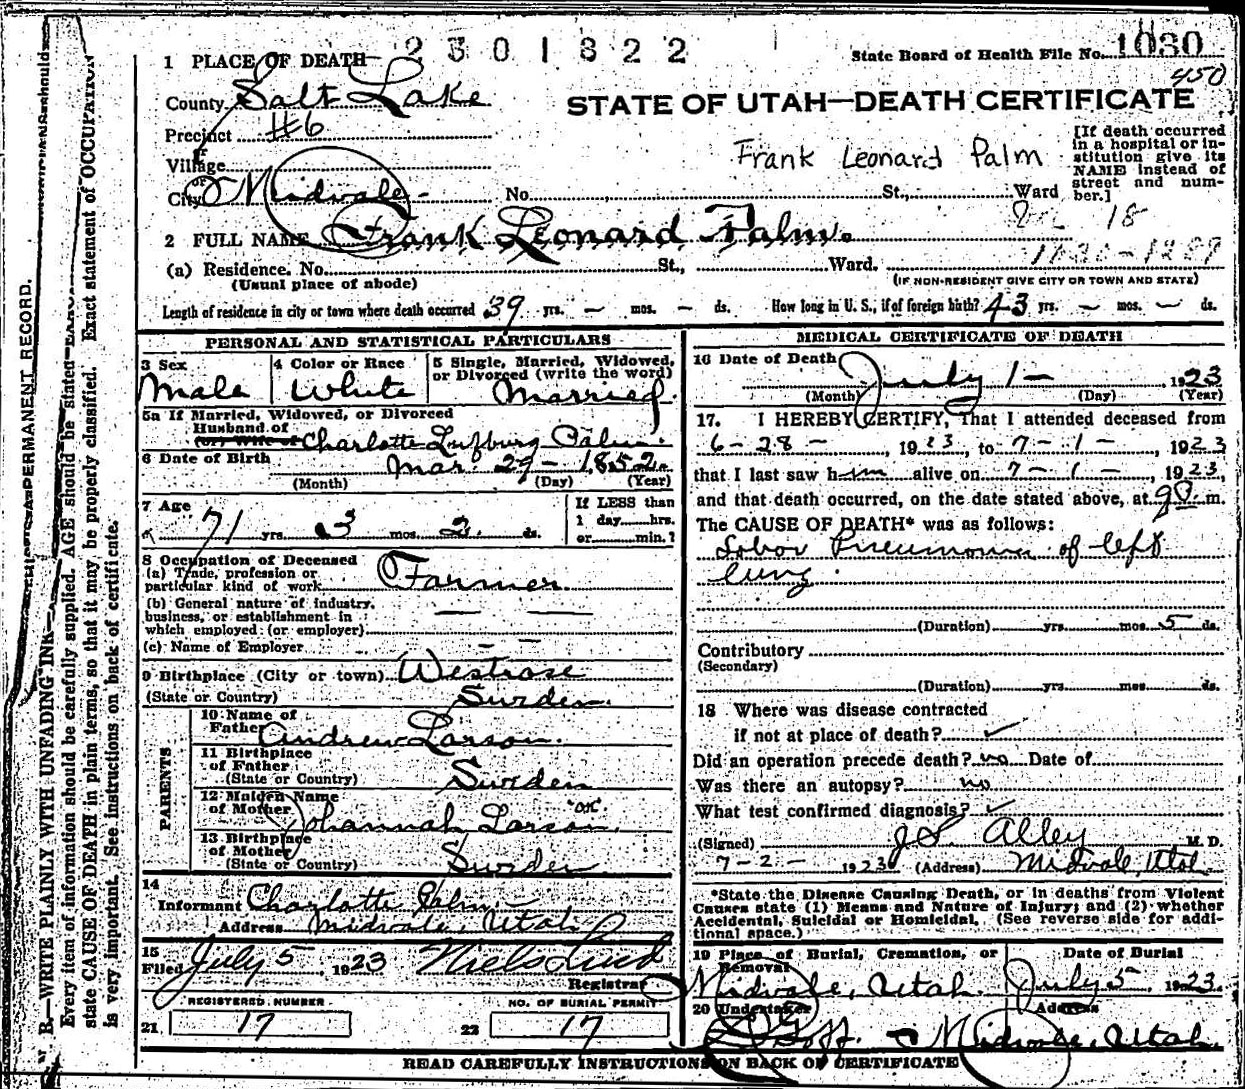 2301822
State Board of Health File No. 1030
450
1 PLACE OF DEATH
County Salt Lake
STATE OF UTAH—DEATH CERTIFICATE
Precinct #6
Village
or
City Midvale - No. St., Ward
Frank Leonard Palm
[If death occurred in a hospital or institution give its NAME instead of street and number.]
18
2 FULL NAME Frank Leonard Palm.
(a) Residence. No. St., Ward.
(Usual place of abode)
(IF NON-RESIDENT GIVE CITY OR TOWN AND STATE)
Length of residence in city or town where death occurred 39 yrs. — mos. — ds. How long in U. S., if of foreign birth? 43 yrs. — mos. — ds.
PERSONAL AND STATISTICAL PARTICULARS
3 Sex
Male
4 Color or Race
White
5 Single, Married, Widowed, or Divorced (write the word)
Married.
5a If Married, Widowed, or Divorced
Husband of
(or) Wife of Charlotte Lufburg Palm.
6 Date of Birth Mar. 29 - 1852
(Month) (Day) (Year)
7 Age
71 yrs. 3 mos. 2 ds.
If LESS than
1 day......hrs.
or......min.?
8 Occupation of Deceased
(a) Trade, profession or particular kind of work Farmer
(b) General nature of industry, business, or establishment in which employed (or employer) — —
(c) Name of Employer —
9 Birthplace (City or town) Westrase
(State or Country) Sweden.
PARENTS
10 Name of Father Andrew Larson.
11 Birthplace of Father
(State or Country) Sweden
12 Maiden Name of Mother Johannah Larson.
"on"
13 Birthplace of Mother
(State or Country) Sweden
14
Informant Charlotte Palm
Address Midvale, Utah
15
Filed July 5, 1923 Niels Lind
Registrar
REGISTERED NUMBER
21 17
NO. OF BURIAL PERMIT
22 17
MEDICAL CERTIFICATE OF DEATH
16 Date of Death July 1 —, 1923
(Month) (Day) (Year)
17. I HEREBY CERTIFY, That I attended deceased from
6-28-, 1923, to 7-1-, 1923
that I last saw him alive on 7-1-, 1923,
and that death occurred, on the date stated above, at 9 P. m.
The CAUSE OF DEATH* was as follows:
Lobar Pneumonia of left
lung.
(Duration) yrs. mos. 5 ds.
Contributory
(Secondary)
(Duration) yrs. mos. ds.
18 Where was disease contracted
if not at place of death? ✓
Did an operation precede death? no Date of
Was there an autopsy? no
What test confirmed diagnosis? ✓
(Signed) J. S. Alley M. D.
7-2-1923 (Address) Midvale, Utah.
*State the Disease Causing Death, or in deaths from Violent Causes state (1) Means and Nature of Injury; and (2) whether Accidental, Suicidal or Homicidal. (See reverse side for additional space.)
19 Place of Burial, Cremation, or Removal
Midvale, Utah.
Date of Burial
July 5, 1923.
20 Undertaker
Goff.
Address
Midvale, Utah
READ CAREFULLY INSTRUCTIONS ON BACK OF CERTIFICATE
B.—WRITE PLAINLY WITH UNFADING INK—THIS IS A PERMANENT RECORD.
Every item of information should be carefully supplied. AGE should be stated
state CAUSE OF DEATH in plain terms, so that it may be properly classified. Exact statement of OCCUPATION
is very important. See instructions on back of certificate.